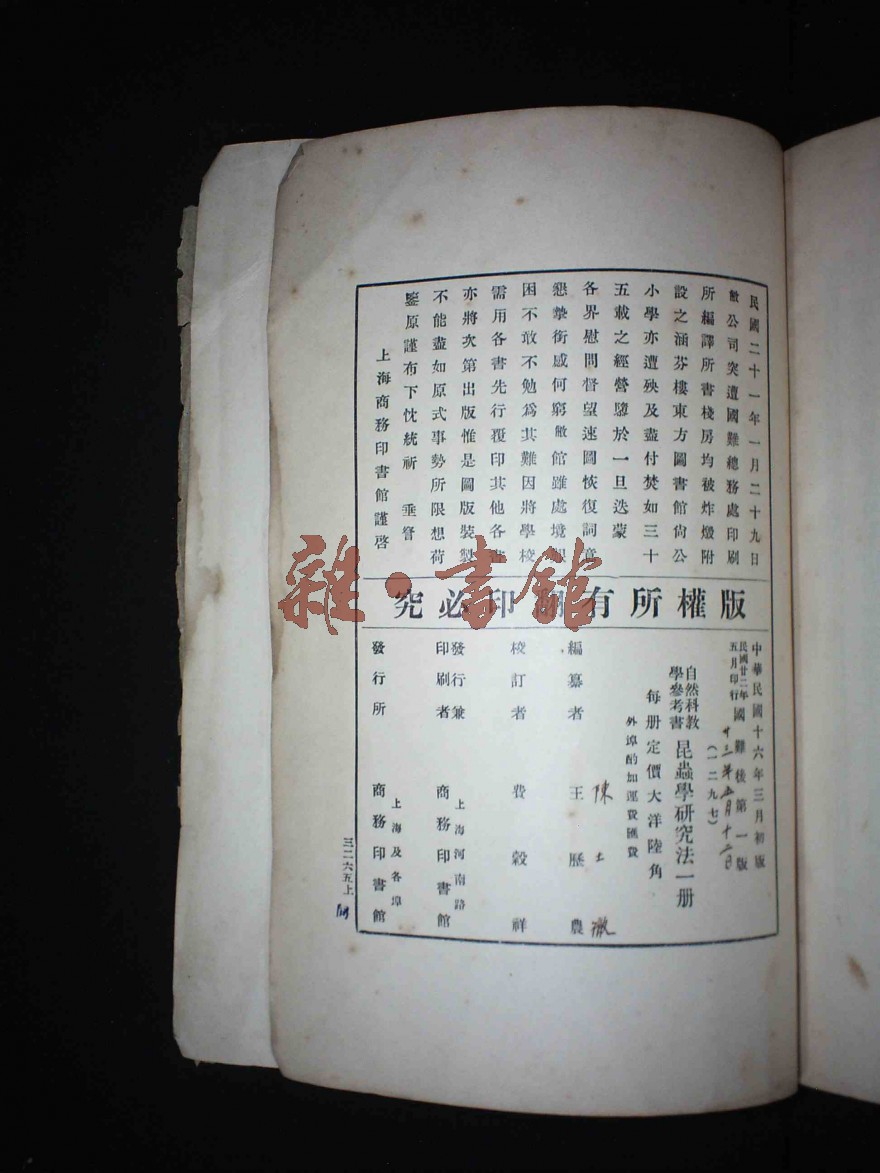 民國二十一年一月二十九日
敝公司突遭國難總務處印刷
所編譯所書棧房均被炸燬附
設之涵芬樓東方圖書館尙公
小學亦遭殃及盡付焚如三十
五載之經營隳於一旦迭蒙
各界慰問督望速圖恢復詞意
懇摯銜感何窮敝館雖處境
困不敢不勉爲其難因將學校
需用各書先行覆印其他各書
亦將次第出版惟是圖版裝製
不能盡如原式事勢所限想荷
鑒原謹布下忱統祈 垂詧
上海商務印書館謹啓
版權所有 印必究
中華民國十六年三月初版
民國廿二年五月印行 國難後第一版
廿三年五月十二日
(一二九七)
自然科教學參考書 昆蟲學研究法一册
每册定價大洋陸角
外埠酌加運費匯費
陳 徵
編纂者 王歷農
校訂者 費穀祥
發行兼印刷者 上海河南路 商務印書館
發行所 上海及各埠 商務印書館
三二六五上
雜·書館